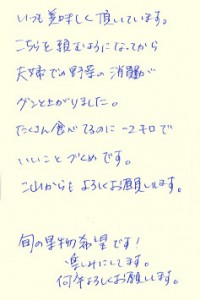 いつも美味しく頂いています。
こちらを頼むようになってから
夫婦での野菜の消費が
グンと上がりました。
たくさん食べてるのに-2キロで
いいことづくめです。
これからもよろしくお願いします。
旬の果物希望です!
楽しみにしてます。
何卒よろしくお願いします。